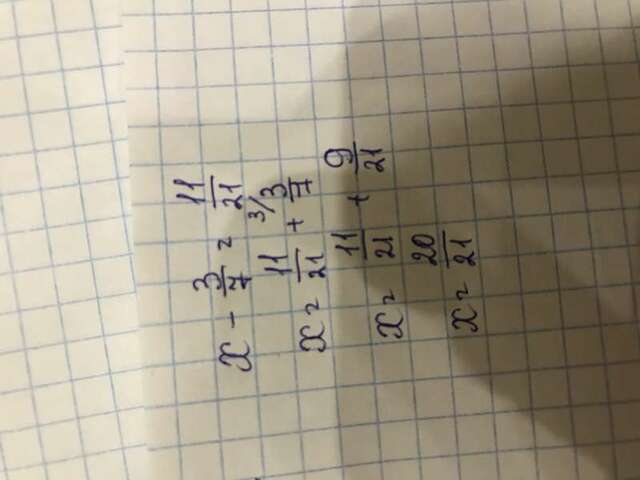 x - 3/7 = 11/21
x = 11/21 + ³/ 3/7
x = 11/21 + 9/21
x = 20/21